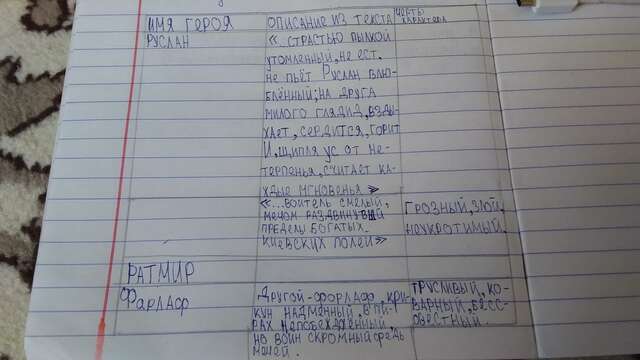 ИМЯ ГЕРОЯ
ОПИСАНИЕ ИЗ ТЕКСТА
ЧЕРТЫ
ХАРАКТЕРА
РУСЛАН
«...СТРАСТЬЮ ПЫЛКОЙ
УТОМЛЕННЫЙ, НЕ ЕСТ,
НЕ ПЬЁТ РУСЛАН ВЛЮ-
БЛЁННЫЙ; НА ДРУГА
МИЛОГО ГЛЯДИД, ВЗДЫ-
ХАЕТ, СЕРДИТСЯ, ГОРИТ
И, ЩИПЛЯ УС ОТ НЕ-
ТЕРПЕНЬЯ, СЧИТАЕТ КА-
ЖДЫЕ МГНОВЕНЬЯ»
«...ВОИТЕЛЬ СМЕЛЫЙ,
МЕЧОМ РАЗДВИНУВШИЙ
ПРЕДЕЛЫ БОГАТЫХ
КИЕВСКИХ ПОЛЕЙ»
ГРОЗНЫЙ, ЗЛОЙ,
НЕУКРОТИМЫЙ.
РАТМИР
ФАРЛАФ
ДРУГОЙ-ФОРЛАФ, КРИ-
КУН НАДМЕННЫЙ, В ПИ-
РАХ НЕПОБЕЖДЕННЫЙ,
НО ВОИН СКРОМНЫЙ СРЕДЬ
МЕЧЕЙ.
ТРУСЛИВЫЙ, КО-
ВАРНЫЙ, БЕСС-
ОВЕСТНЫЙ.